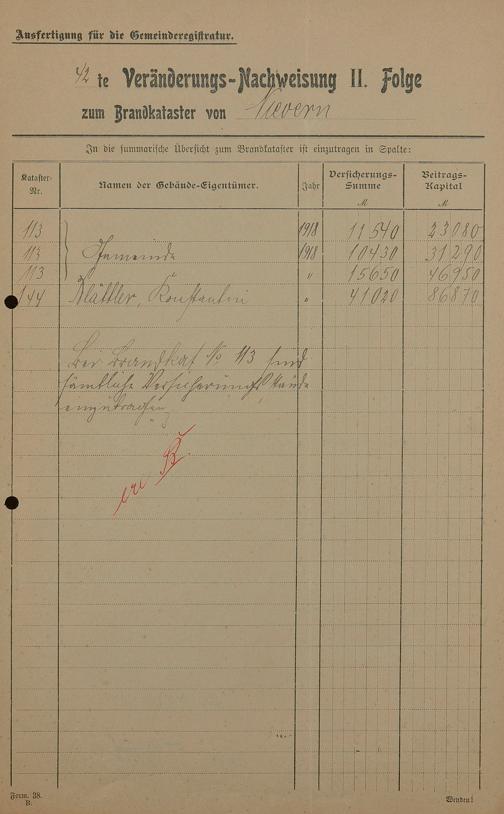 Ausfertigung für die Gemeinderegistratur.
42 te Veränderungs-Nachweisung II. Folge
zum Brandkataster von Nievern
In die summarische Übersicht zum Brandkataster ist einzutragen in Spalte:
Kataster-Nr. Namen der Gebäude-Eigentümer. Jahr Versicherungs-Summe M Beitrags-Kapital M
113 1918 11540 23080
113 Gemeinde 1918 10430 31290
113 " 15650 46950
144 Blättler, Konstantin " 41020 86870
Bei Brandkat. No 113 sind
sämtliche Versicherungs
einzutragen
Form. 38.
B.
Wenden!